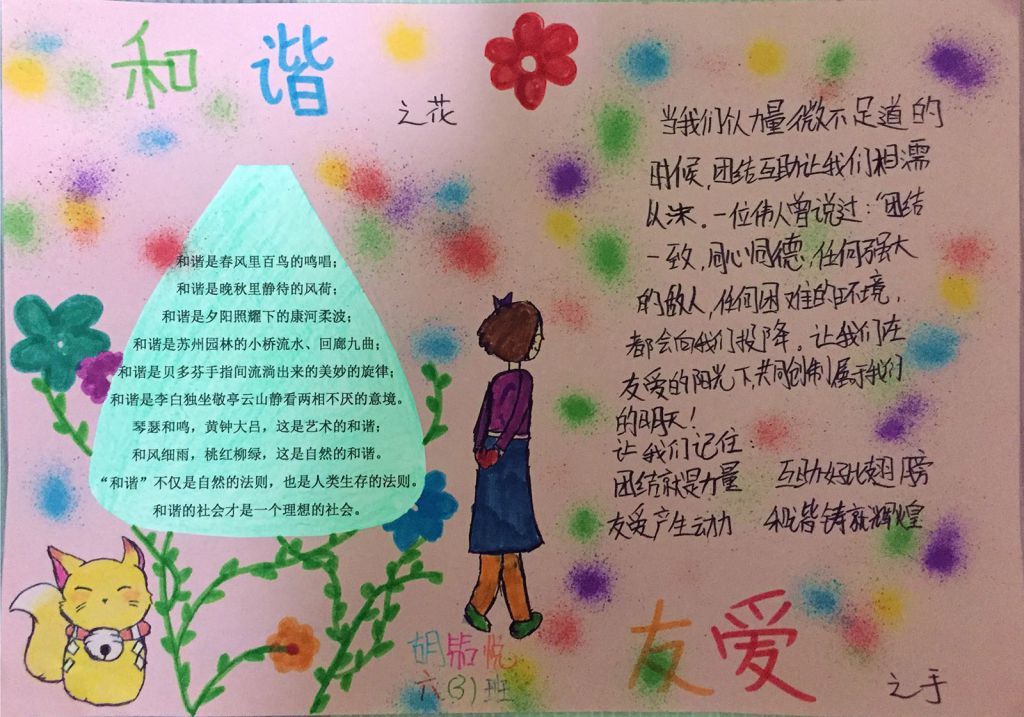 和谐
之花
和谐是春风里百鸟的鸣唱；
和谐是晚秋里静待的风荷；
和谐是夕阳照耀下的康河柔波；
和谐是苏州园林的小桥流水、回廊九曲；
和谐是贝多芬手指间流淌出来的美妙的旋律；
和谐是李白独坐敬亭云山静看两相不厌的意境。
琴瑟和鸣，黄钟大吕，这是艺术的和谐；
和风细雨，桃红柳绿，这是自然的和谐。
“和谐”不仅是自然的法则，也是人类生存的法则。
和谐的社会才是一个理想的社会。
当我们从力量微不足道的
时候，团结互助让我们相濡
以沫。一位伟人曾说过：“团结
一致，同心同德，任何强大
的敌人，任何困难的环境，
都会向我们投降。让我们在
友爱的阳光下共同创制属于我们
的明天！
让我们记住：
团结就是力量 互助好比翅膀
友爱产生动力 和谐铸就辉煌
友爱
之手
胡 悦
六(3)班